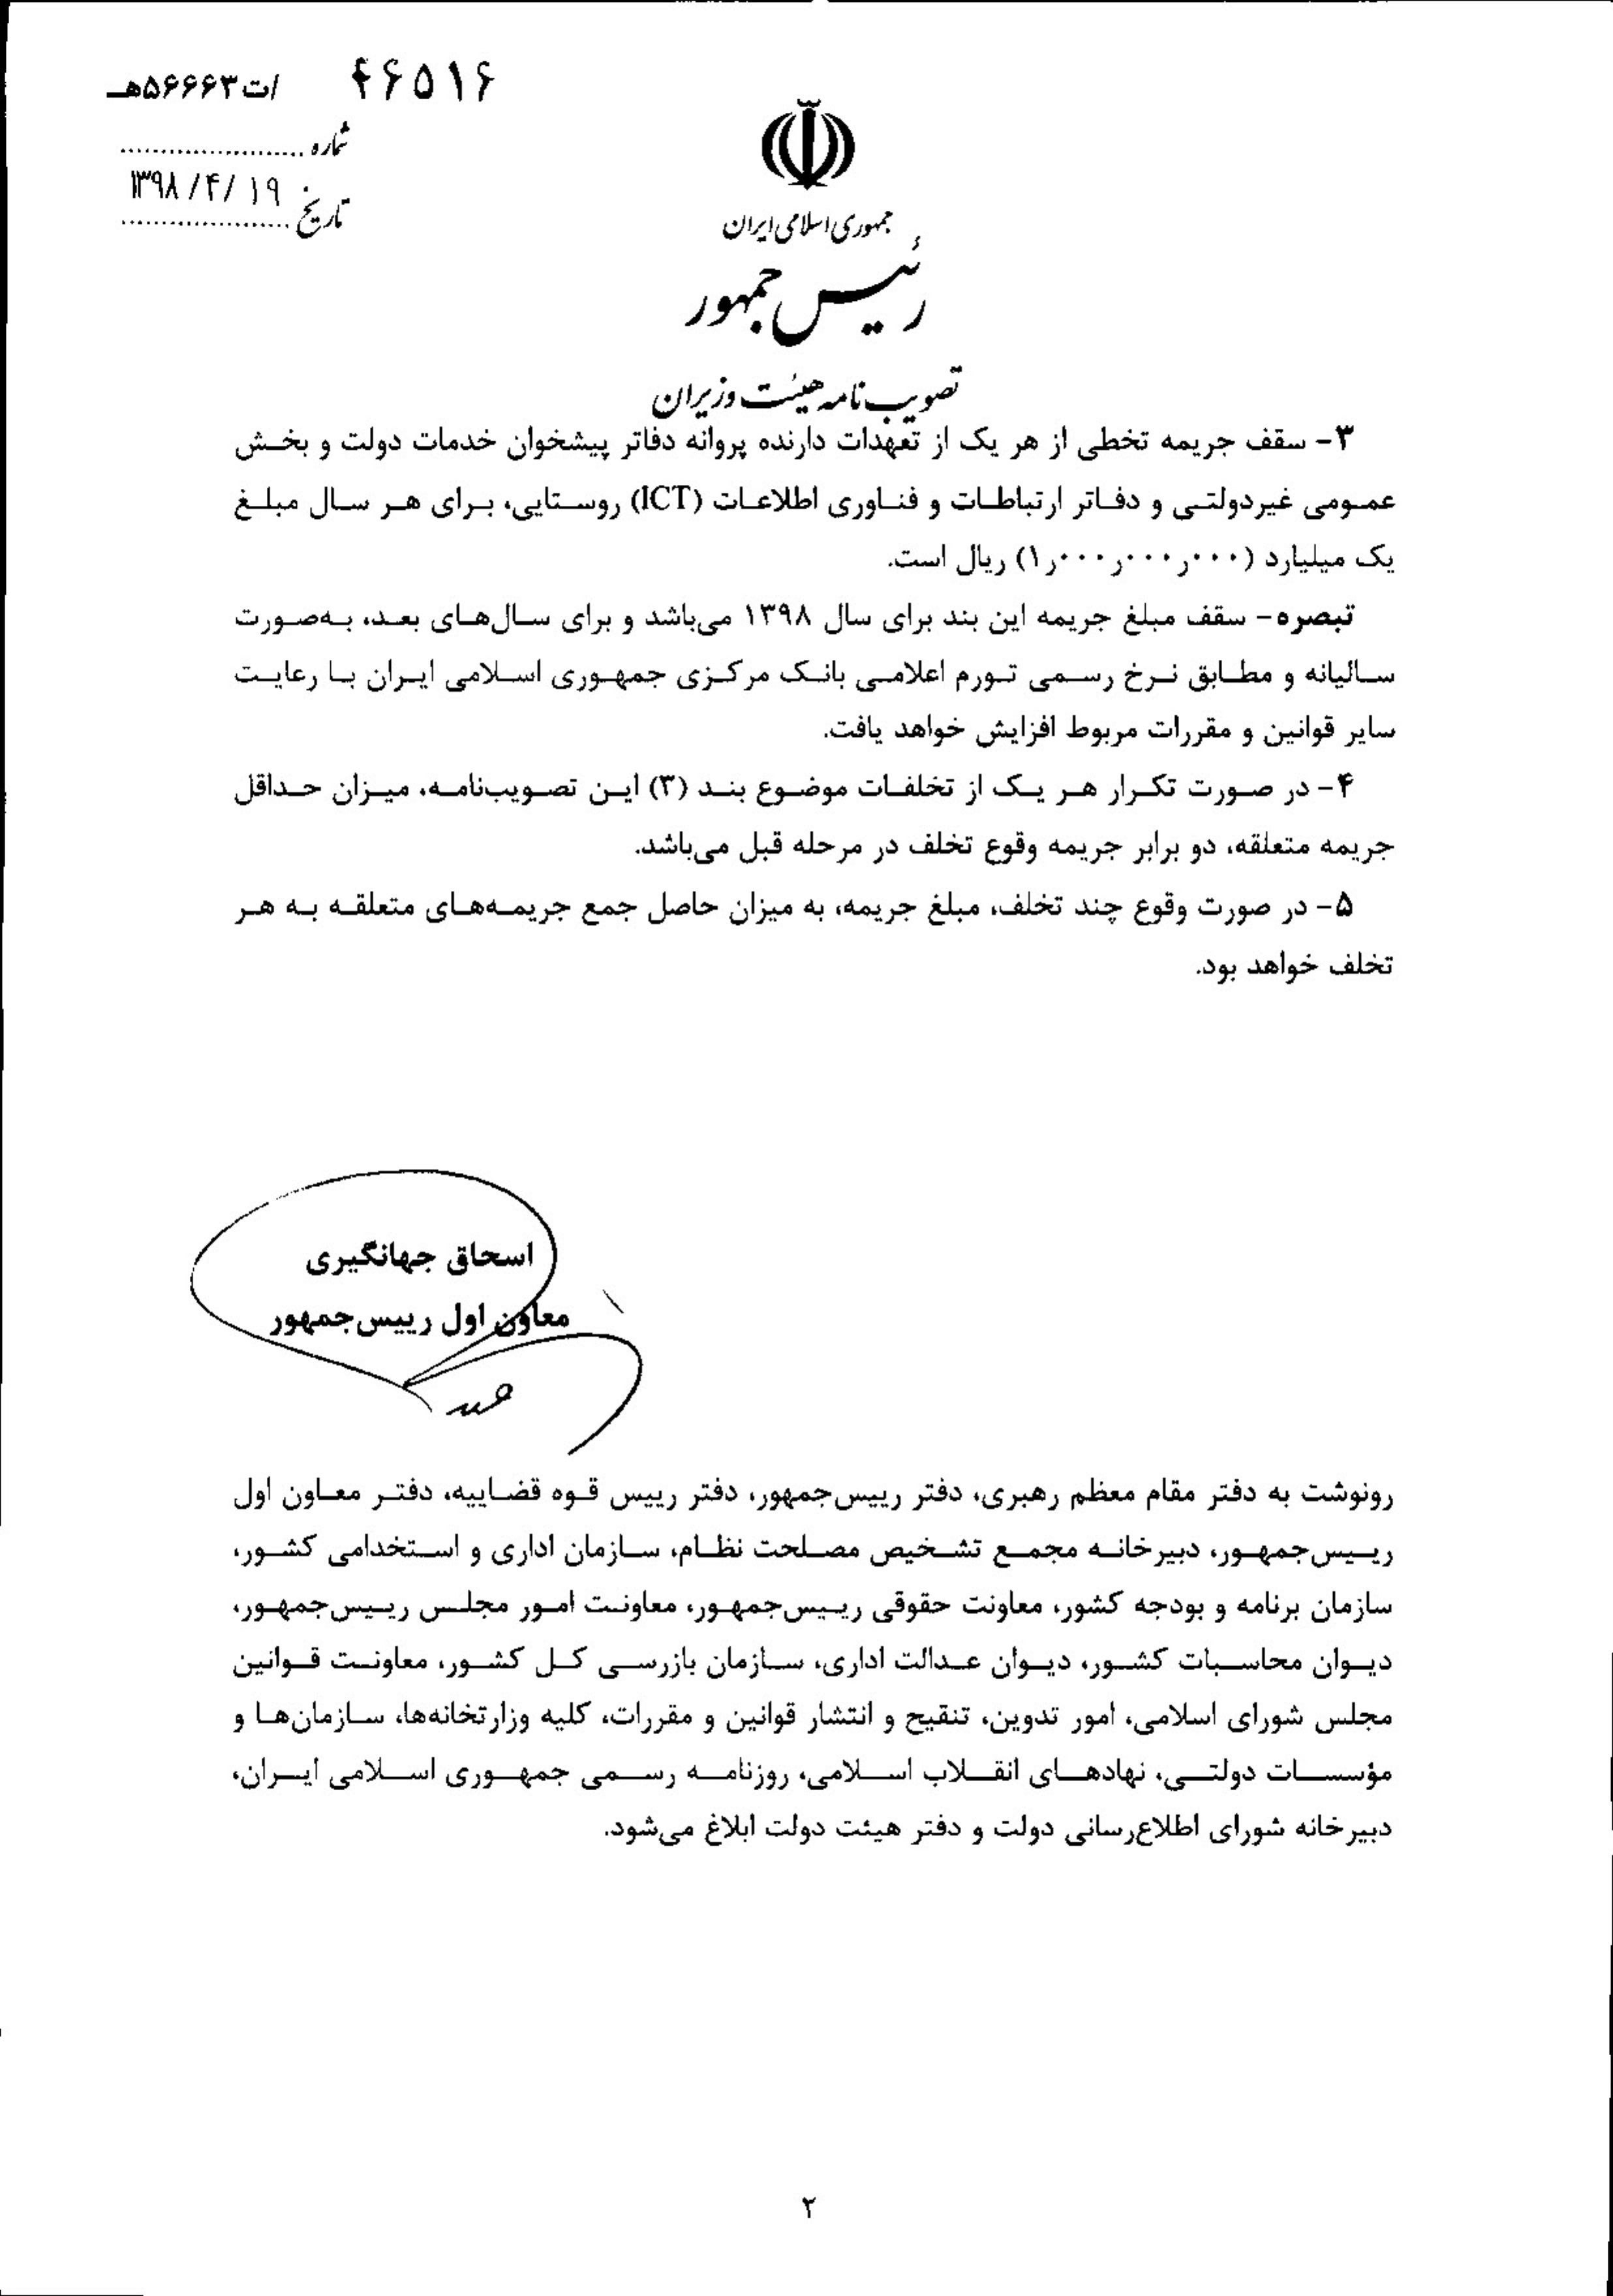 ۴۶۵۱۶ /ت۵۶۶۶۳هـ
شماره
تاریخ ۱۳۹۸/۴/۱۹
جمهوری اسلامی ایران
رئیس جمهور
تصویب نامه هیئت وزیران
۳- سقف جریمه تخطی از هر یک از تعهدات دارنده پروانه دفاتر پیشخوان خدمات دولت و بخش
عمومی غیردولتی و دفاتر ارتباطات و فناوری اطلاعات (ICT) روستایی، برای هر سال مبلغ
یک میلیارد (۱٫۰۰۰٫۰۰۰٫۰۰۰) ریال است.
تبصره- سقف مبلغ جریمه این بند برای سال ۱۳۹۸ می‌باشد و برای سال‌های بعد، به‌صورت
سالیانه و مطابق نرخ رسمی تورم اعلامی بانک مرکزی جمهوری اسلامی ایران با رعایت
سایر قوانین و مقررات مربوط افزایش خواهد یافت.
۴- در صورت تکرار هر یک از تخلفات موضوع بند (۳) این تصویب‌نامه، میزان حداقل
جریمه متعلقه، دو برابر جریمه وقوع تخلف در مرحله قبل می‌باشد.
۵- در صورت وقوع چند تخلف، مبلغ جریمه، به میزان حاصل جمع جریمه‌های متعلقه به هر
تخلف خواهد بود.
اسحاق جهانگیری
معاون اول رییس‌جمهور
رونوشت به دفتر مقام معظم رهبری، دفتر رییس‌جمهور، دفتر رییس قوه قضاییه، دفتر معاون اول
رییس‌جمهور، دبیرخانه مجمع تشخیص مصلحت نظام، سازمان اداری و استخدامی کشور،
سازمان برنامه و بودجه کشور، معاونت حقوقی رییس‌جمهور، معاونت امور مجلس رییس‌جمهور،
دیوان محاسبات کشور، دیوان عدالت اداری، سازمان بازرسی کل کشور، معاونت قوانین
مجلس شورای اسلامی، امور تدوین، تنقیح و انتشار قوانین و مقررات، کلیه وزارتخانه‌ها، سازمان‌ها و
مؤسسات دولتی، نهادهای انقلاب اسلامی، روزنامه رسمی جمهوری اسلامی ایران،
دبیرخانه شورای اطلاع‌رسانی دولت و دفتر هیئت دولت ابلاغ می‌شود.
۲